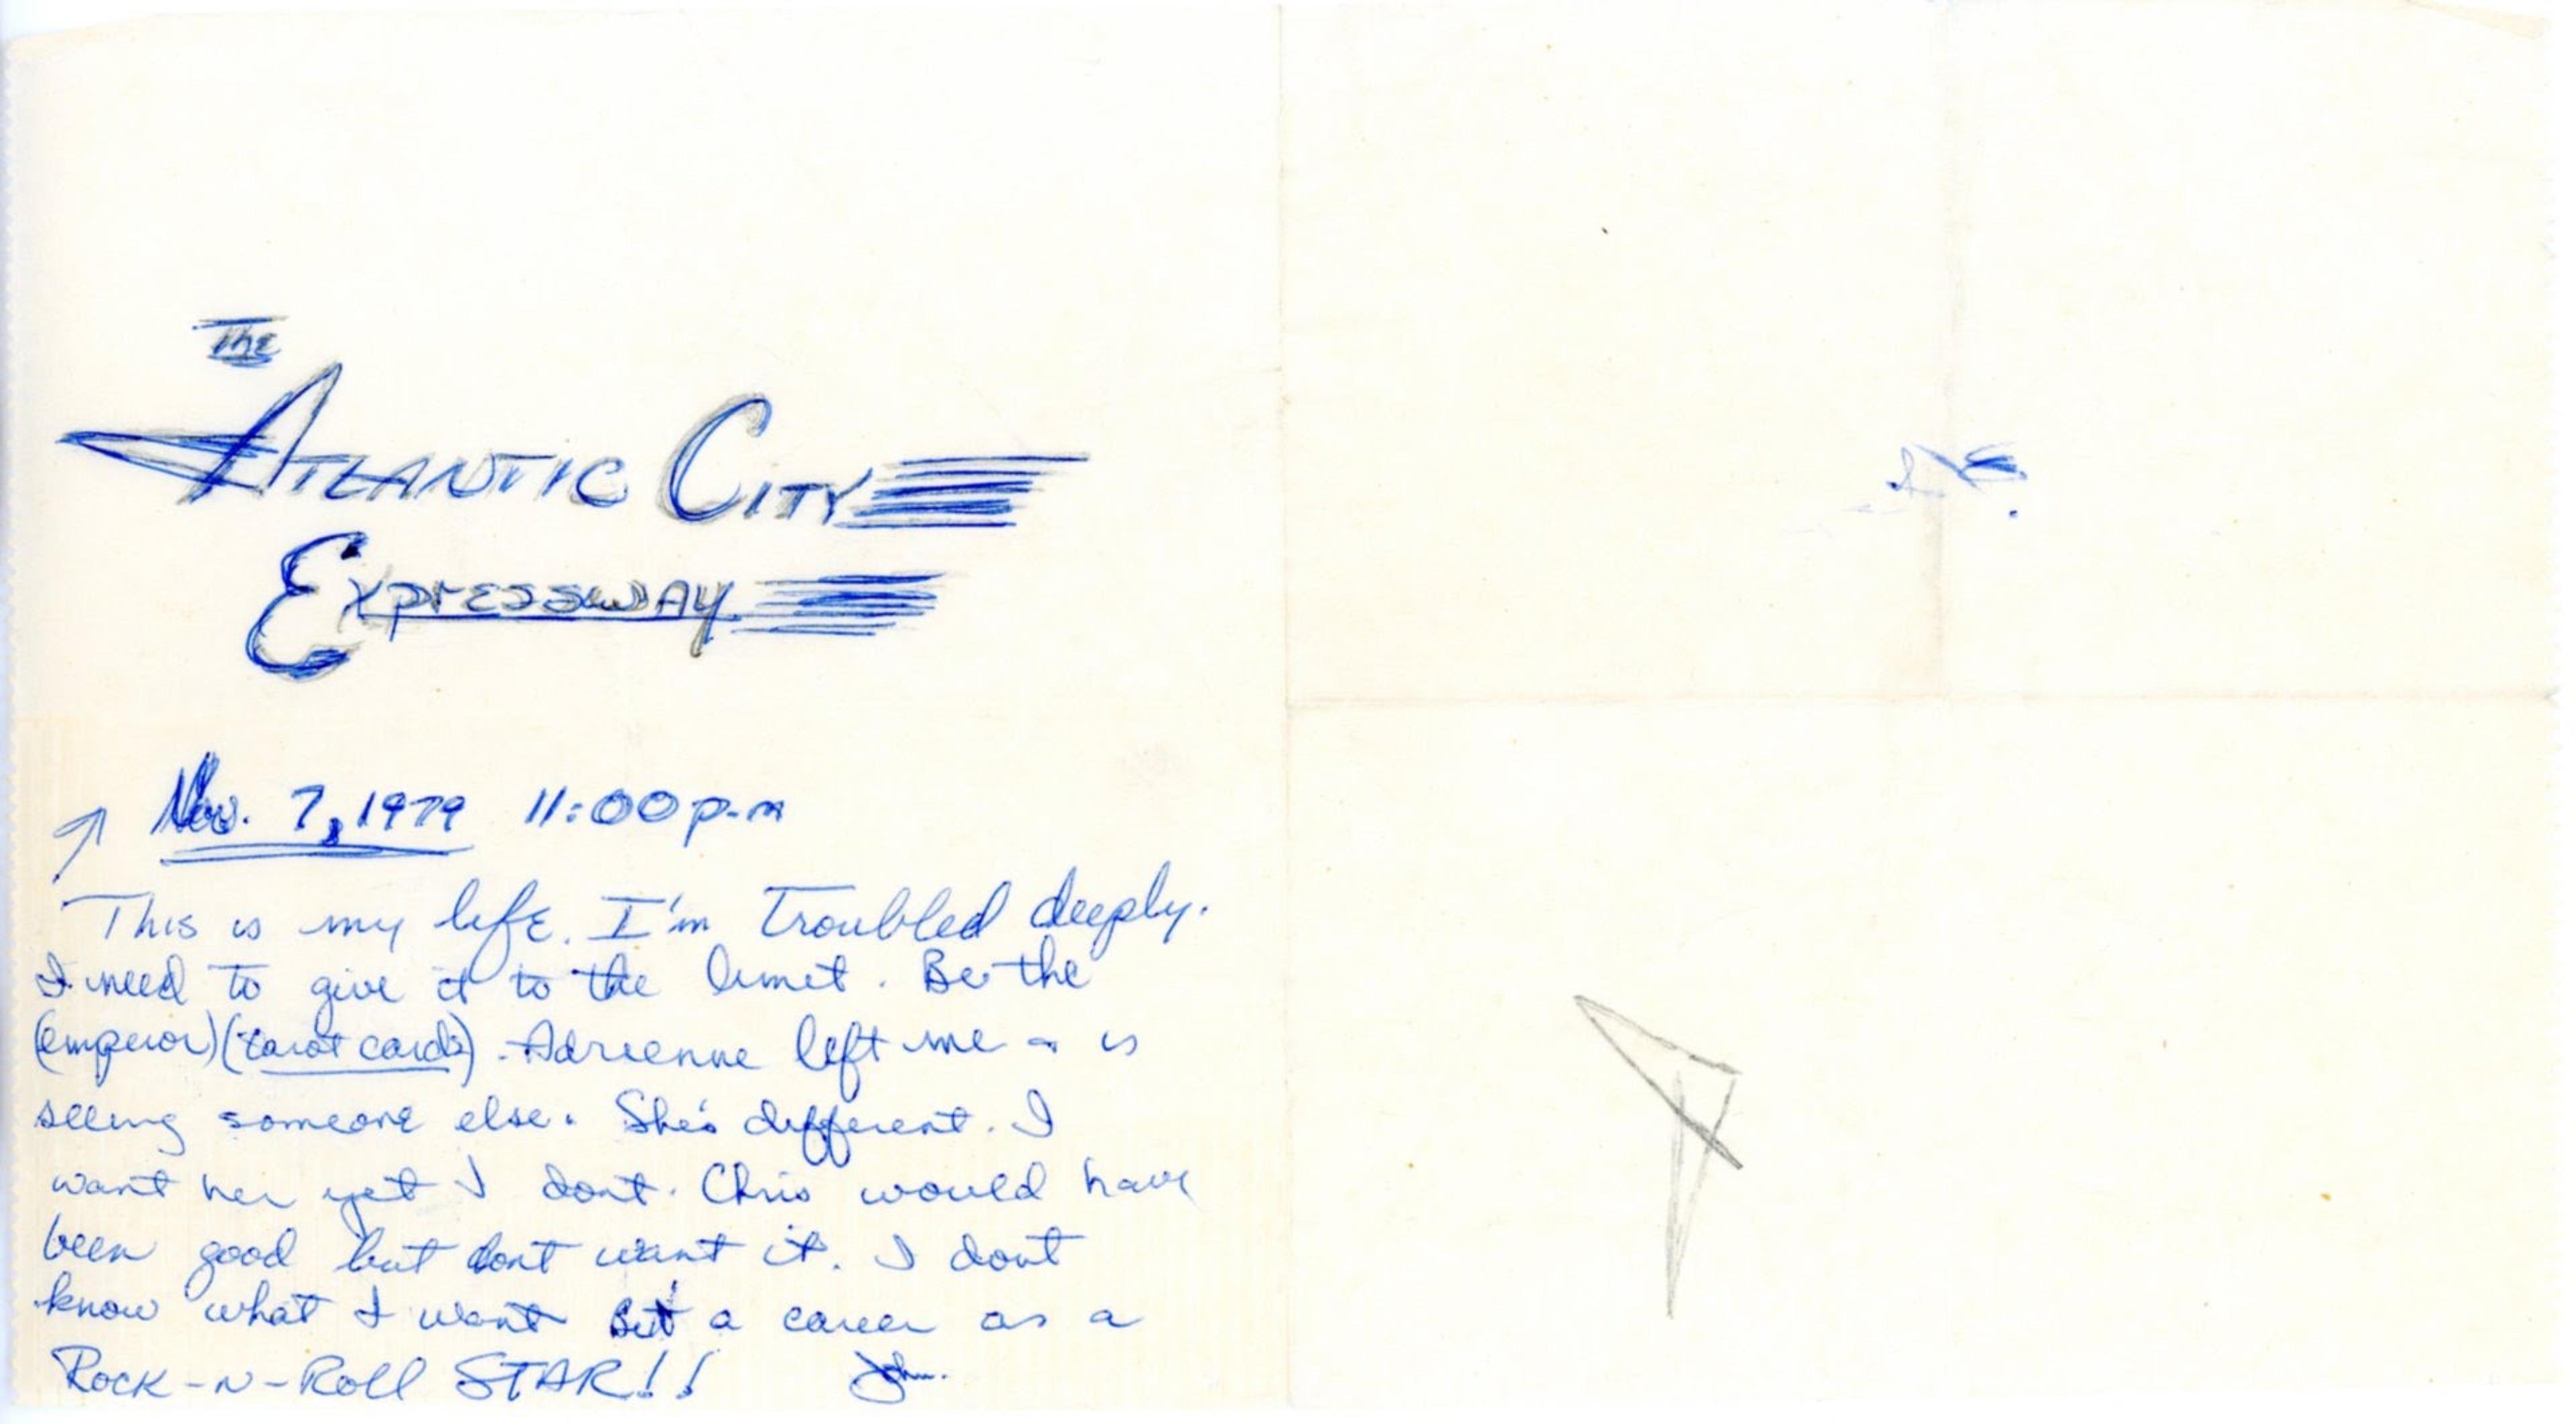 The
ATLANTIC CITY
EXPRESSWAY
Nov. 7, 1979 11:00 p.m
This is my life. I'm Troubled deeply.
I need to give it to the limit. Be the
(emperor) (tarot cards). Adrienne left me is
seeing someone else. She's different. I
want her yet I dont. Chris would have
been good but dont want it. I dont
know what I want But a career as a
ROCK-N-ROLL STAR!!
John.